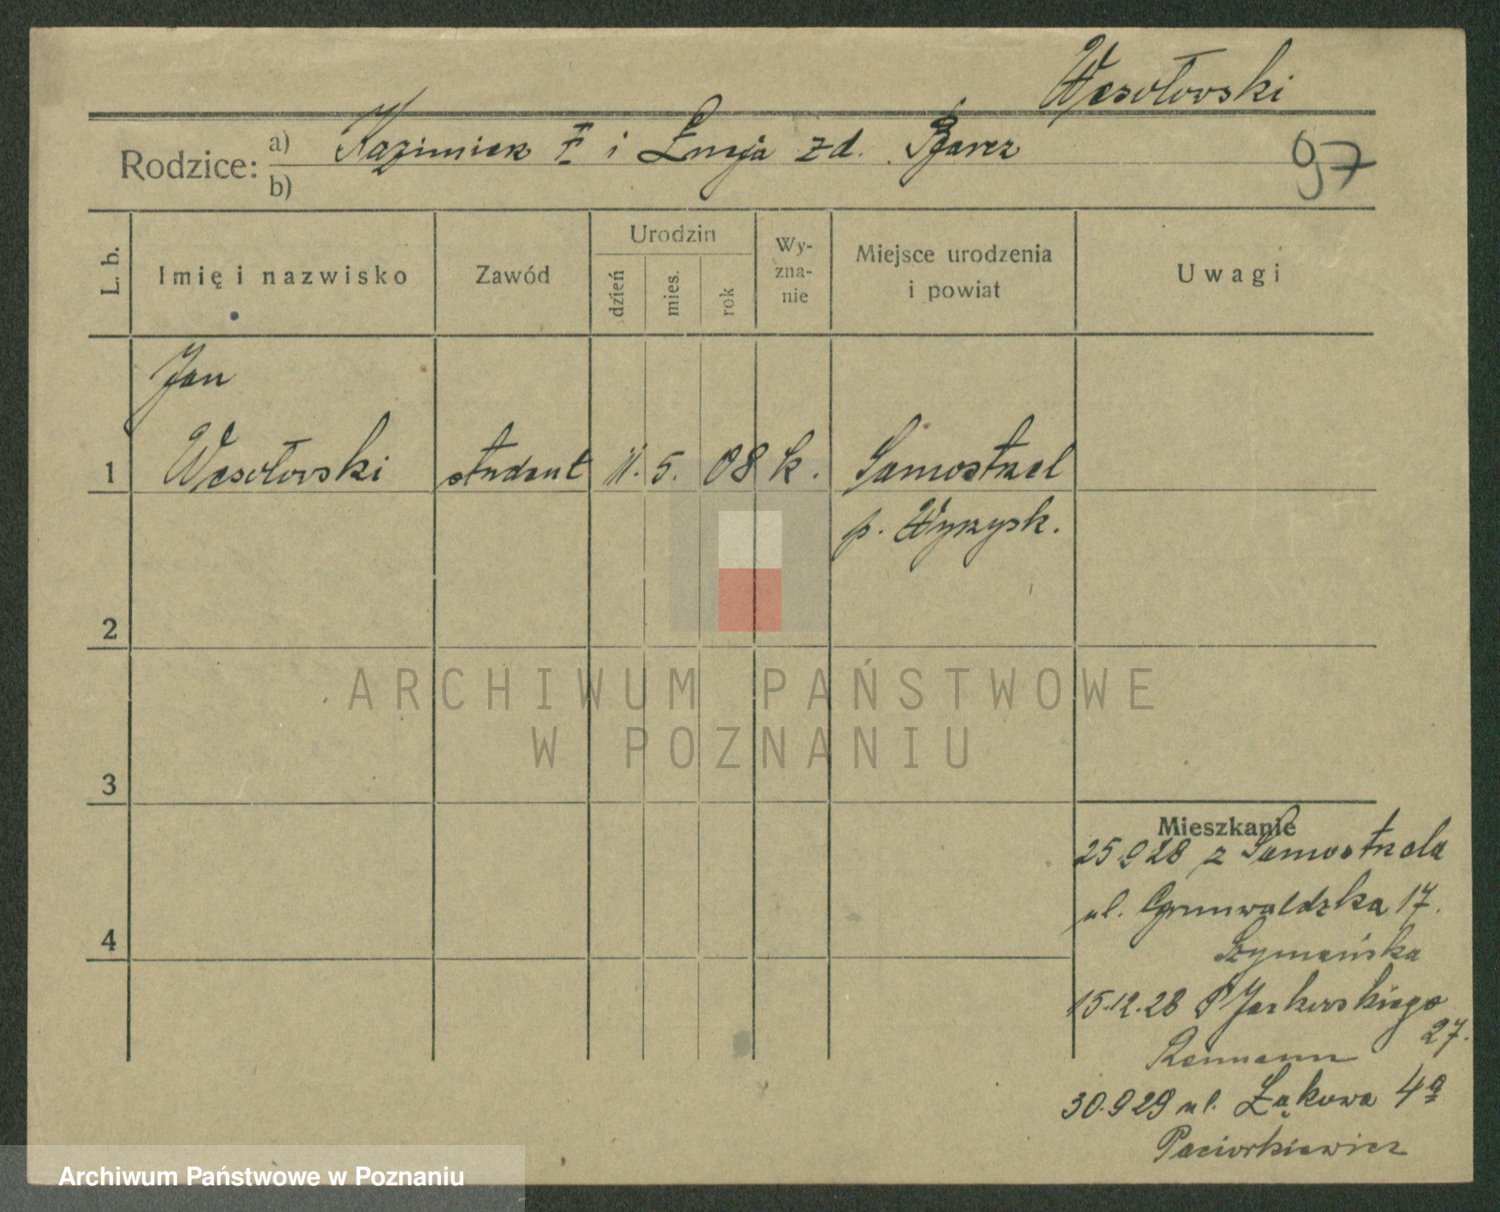 Wesołowski
Rodzice: a) Kazimierz F i Łucja zd.
b)
97
L. b.
Imię i nazwisko
Zawód
Urodzin
dzień
mies.
rok
Wy-
zna-
nie
Miejsce urodzenia
i powiat
Uwagi
Jan
1 Wesołowski student 11. 5. 08 k. Samostrzel
p. Wyrzysk.
2
3
4
Mieszkanie
25.9 28 z Samostrzela
ul. Grunwaldzka 17.
Szymańska
15.12.28 Jackowskiego
27.
Reumann
30.9 29 ul. Łąkowa 4a
Paciorkiewicz
ARCHIWUM PAŃSTWOWE
W POZNANIU
Archiwum Państwowe w Poznaniu